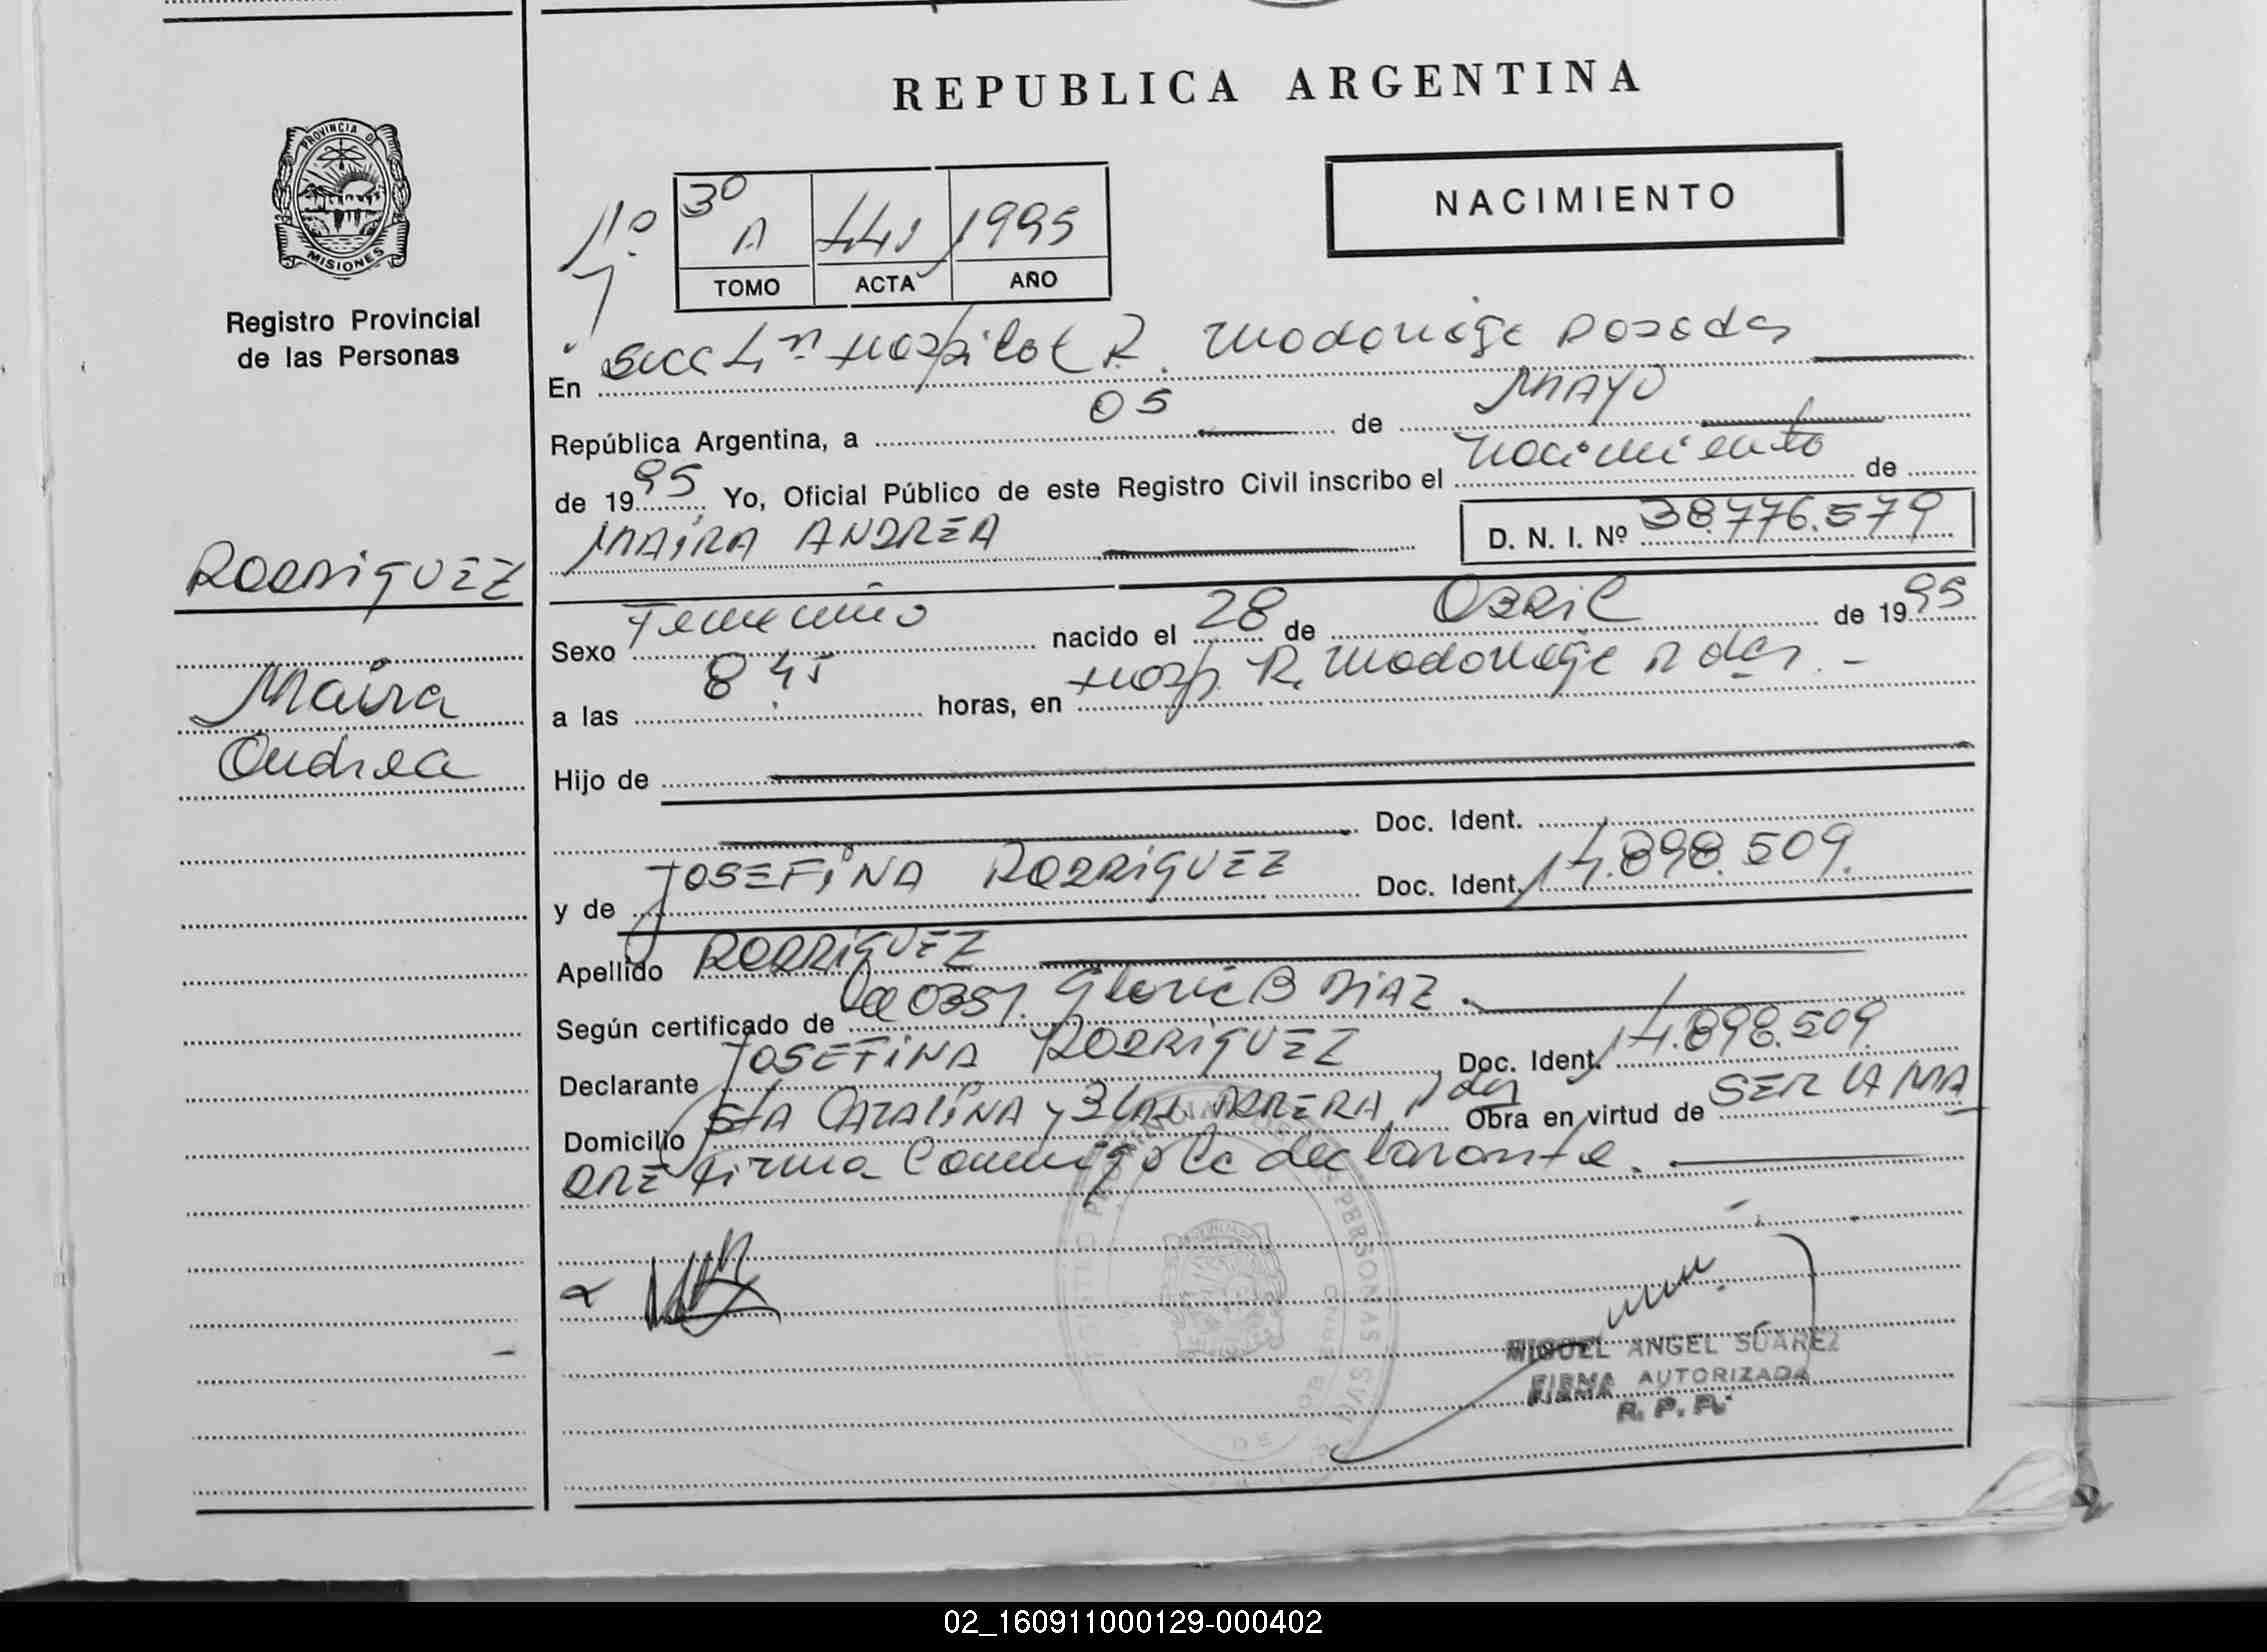 REPUBLICA ARGENTINA
PROVINCIA D
MISIONES
Registro Provincial
de las Personas
NACIMIENTO
3º
A 1995
TOMO ACTA AÑO
En Secc 1ª Hospital R. Madariaga Posadas
República Argentina, a 05 de MAYO
de 1995 Yo, Oficial Público de este Registro Civil inscribo el nacimiento de
MAIRA ANDREA D. N. I. Nº 38.776.579
RODRIGUEZ
Maira
Andrea
Sexo Femenino nacido el 28 de Abril de 1995
a las 8 45 horas, en Hosp. R. Madariaga Pdas.
Hijo de
Doc. Ident.
y de JOSEFINA RODRIGUEZ Doc. Ident. 14.898.509.
Apellido RODRIGUEZ
Según certificado de Gloria B DIAZ
Declarante JOSEFINA RODRIGUEZ Doc. Ident. 14.898.509
Domicilio Sta CATALINA y BLAS PARERA Pdas Obra en virtud de SER LA MA
DRE firma conmigo la declarante.
MIGUEL ANGEL SUAREZ
FIRMA AUTORIZADA
R. P. P.
02_160911000129-000402